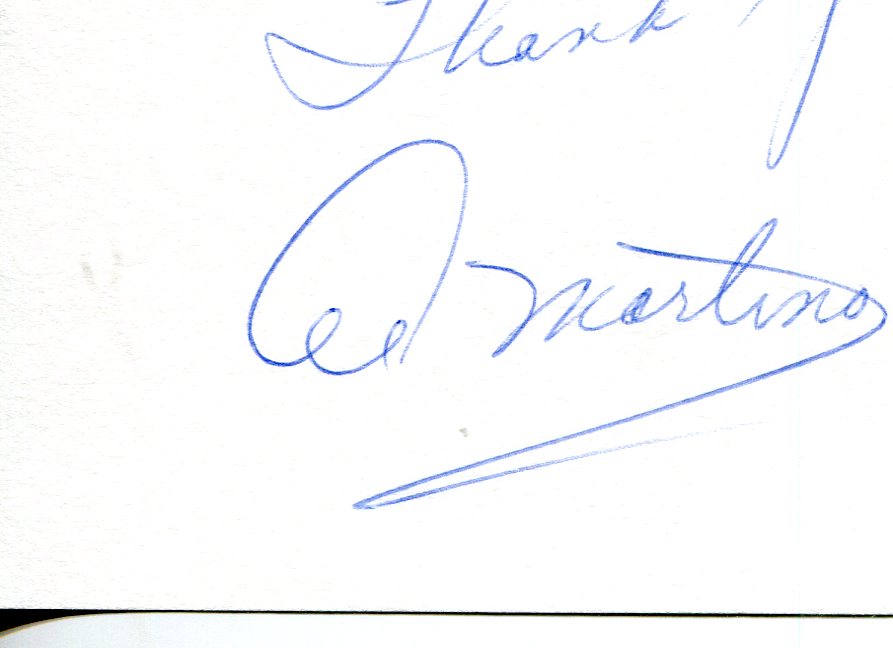 Thank
Ed Martino